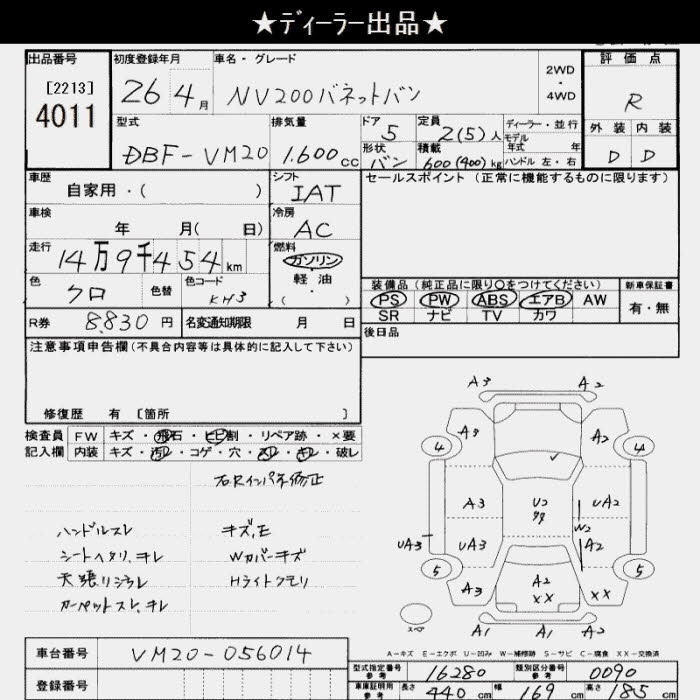 ★ディーラー出品★
出品番号 初度登録年月 車名・グレード 評価点
[2213] 4011 26 4月 NV200バネットバン 2WD・4WD R
型式 排気量 ドア 5 定員 2(5)人 ディーラー・並行 外装 内装
モデル年式 年
DBF-VM20 1.600cc 形状 バン 積載 600(400)kg ハンドル 左・右 D D
車歴 自家用・( ) シフト IAT セールスポイント (正常に機能するものに限ります)
車検 年 月( 日) 冷房 AC
走行 14万9千454km 燃料 ガソリン・軽油・( )
色 クロ 色替 色コード KH3 装備品 (純正品に限り○をつけてください) 新車保証書
PS PW ABS エアB AW 有・無
SR ナビ TV カワ
R券 8,830円 名変通知期限 月 日 後日品
注意事項申告欄(不具合内容等は具体的に記入して下さい)
修復歴 有 [箇所 ]
検査員 FW キズ・飛石・ヒビ割・リペア跡・×要
記入欄 内装 キズ・汚レ・コゲ・穴・スレ・キレ・破レ
右Rインパネ修正
ハンドルスレ キズ,E
シートヘタリ,キレ Wカバーキズ
天張リジラレ Hライトクモリ
カーペットスレ,キレ
A3 A2
A3 A2
4 4
A3 U2 UA2
W2
UA3 UA3 A2
5 5
A3 A2 ×× ××
スペア A1 A1 A2
A-キズ E-エクボ U-凹み W-補修跡 S-サビ C-腐食 XX-交換済
車台番号 VM20-056014
型式指定番号 参考 16280 類別区分番号 参考 0090
登録番号
車庫証明用 参考 長さ 440cm 幅 169cm 高さ 185cm